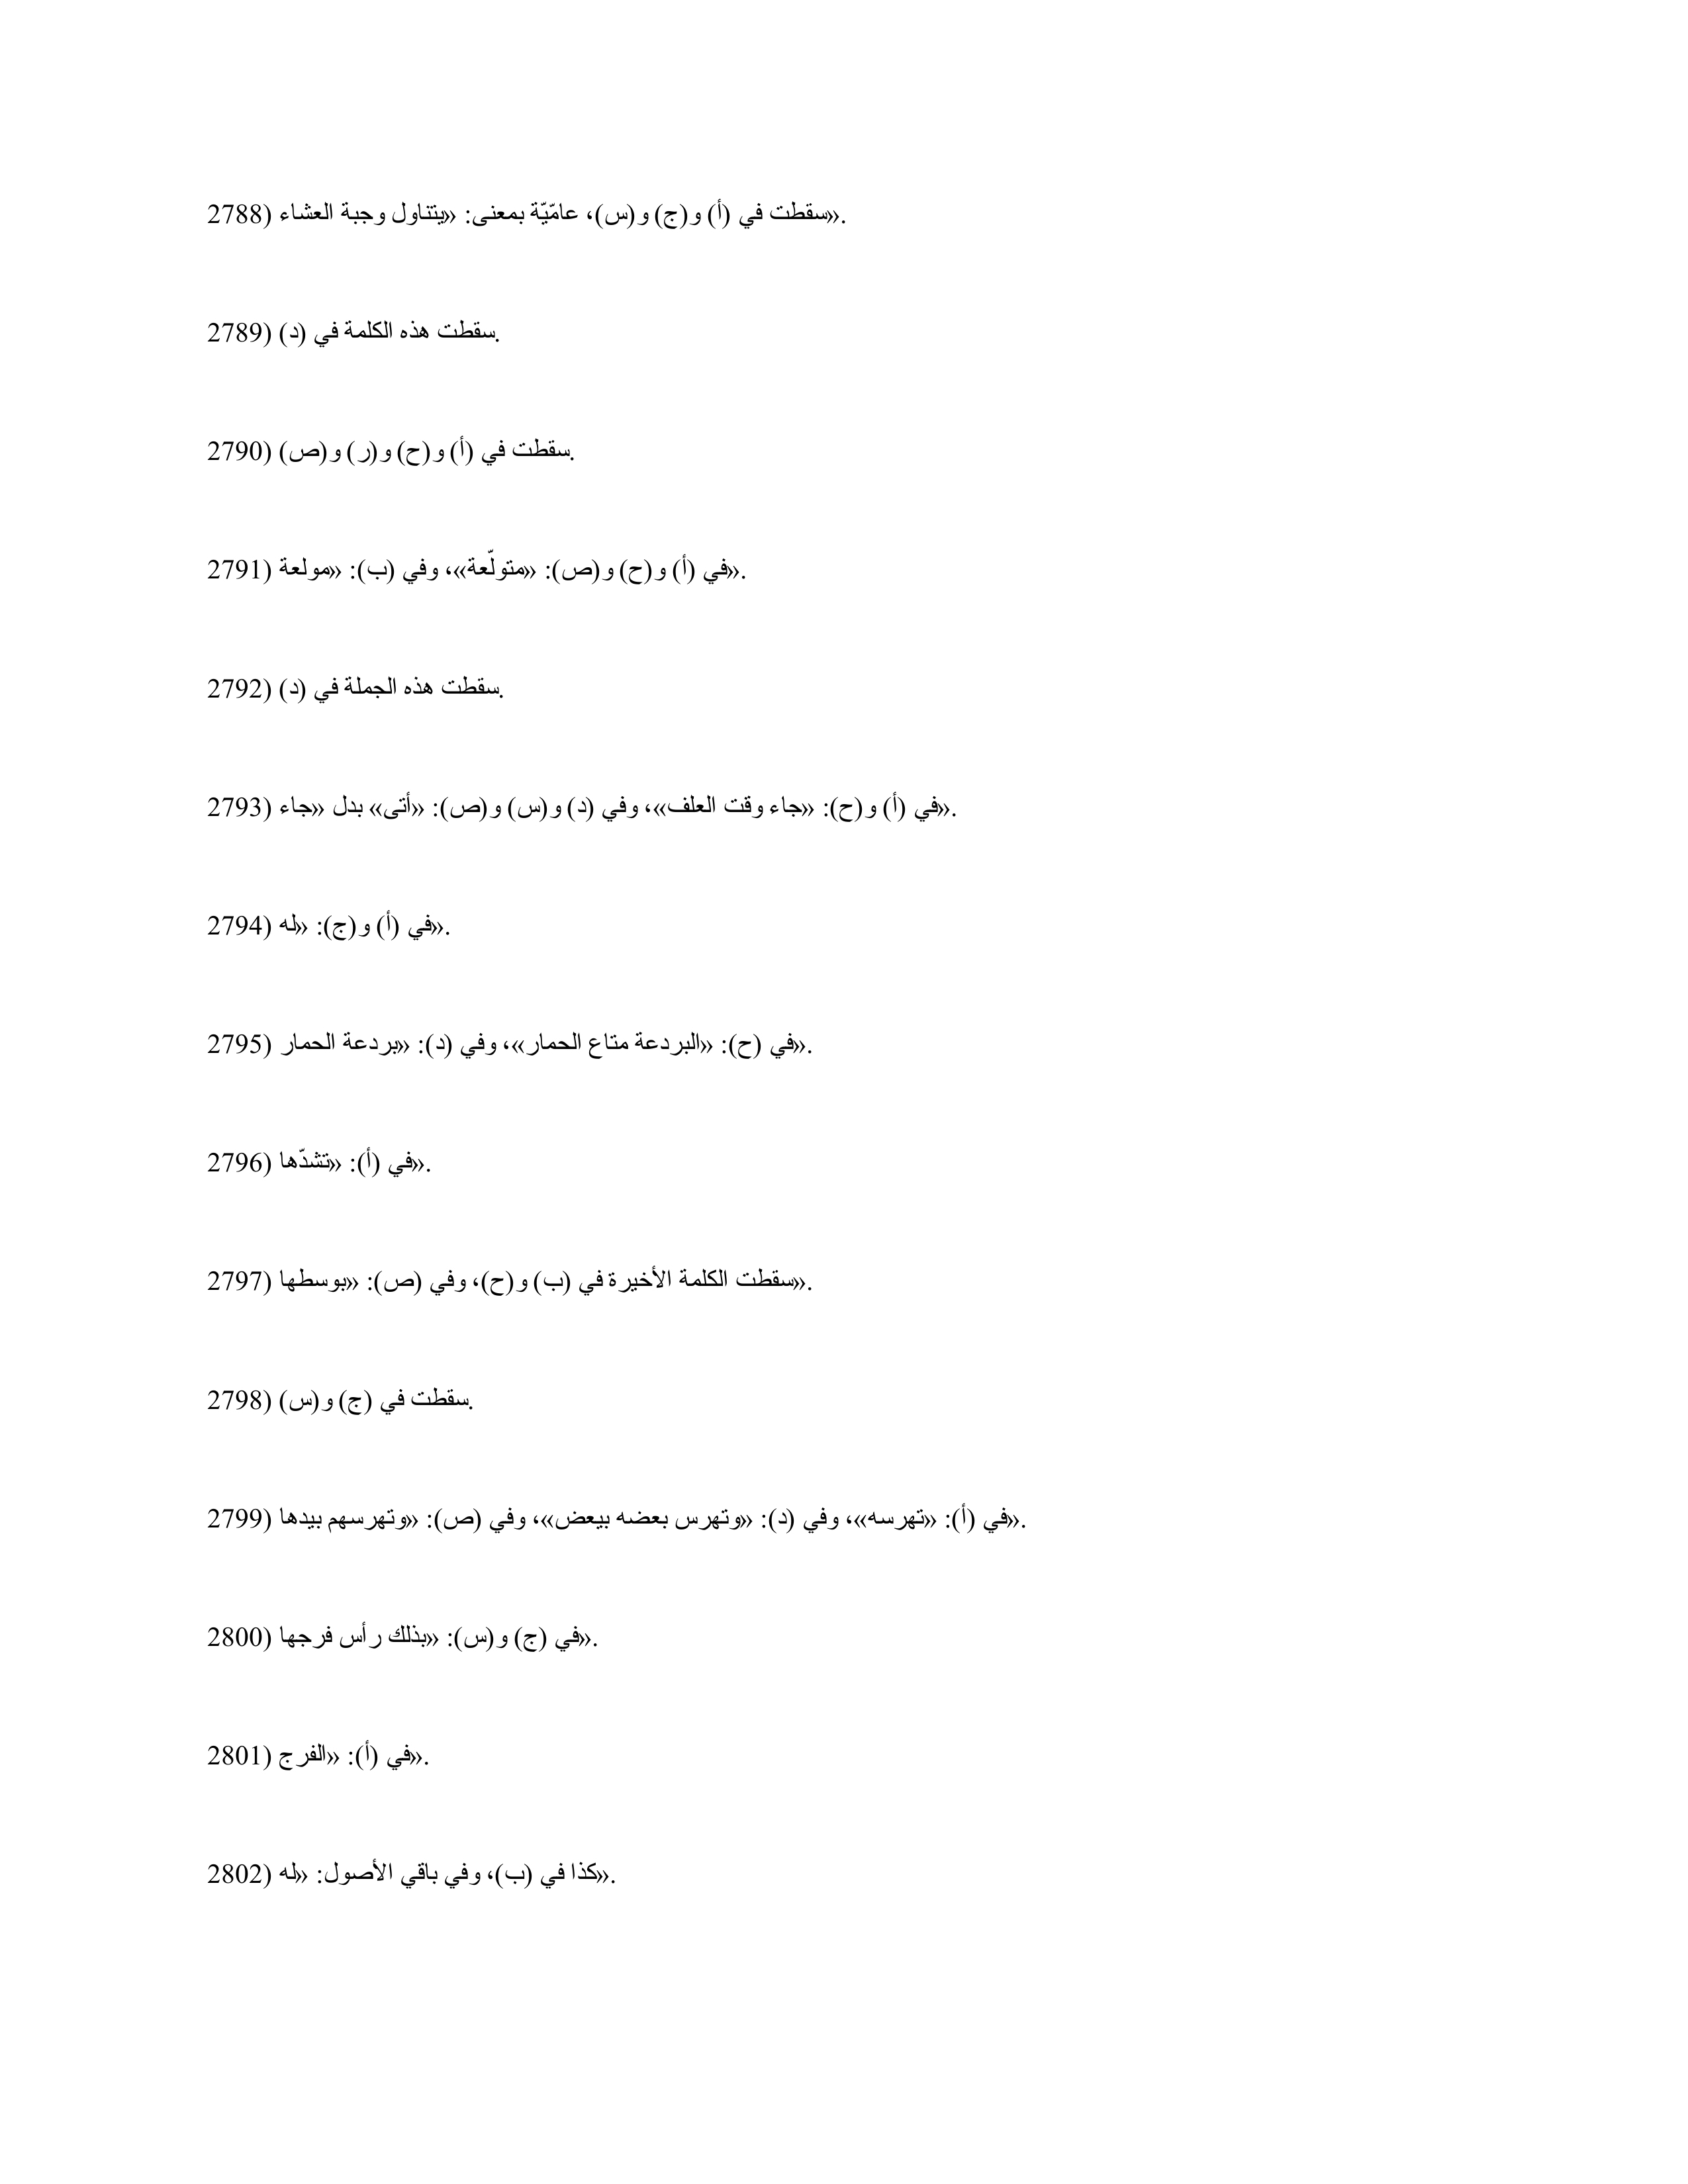 2788) سقطت في (أ) و(ج) و(س)، عامّيّة بمعنى: «يتناول وجبة العشاء».
2789) سقطت هذه الكلمة في (د).
2790) سقطت في (أ) و(ح) و(ر) و(ص).
2791) في (أ) و(ح) و(ص): «متولّعة»، وفي (ب): «مولعة».
2792) سقطت هذه الجملة في (د).
2793) في (أ) و(ح): «جاء وقت العلف»، وفي (د) و(س) و(ص): «أتى» بدل «جاء».
2794) في (أ) و(ج): «له».
2795) في (ح): «البردعة متاع الحمار»، وفي (د): «بردعة الحمار».
2796) في (أ): «تشدّها».
2797) سقطت الكلمة الأخيرة في (ب) و(ح)، وفي (ص): «بوسطها».
2798) سقطت في (ج) و(س).
2799) في (أ): «تهرسه»، وفي (د): «وتهرس بعضه ببعض»، وفي (ص): «وتهرسهم بيدها».
2800) في (ج) و(س): «بذلك رأس فرجها».
2801) في (أ): «الفرج».
2802) كذا في (ب)، وفي باقي الأصول: «له».